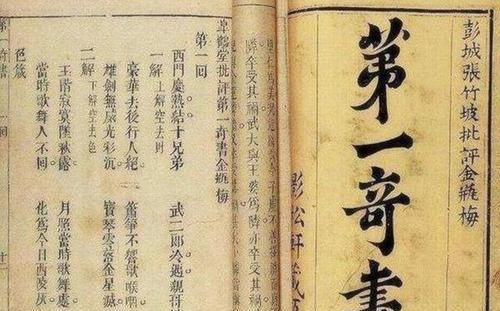 彭城張竹坡批評金瓶梅
第一奇書
影松軒藏
障卒受其禍武大與王婆為隣亦卒受其
皋鶴堂批評第一奇書金瓶梅
第一回
西門慶熱結十兄弟　武二郎冷遇親哥
一解　上解空去財
豪華去後行人絕　簫箏不響歌喉咽
雄劍無威光彩沉　寶琴零落金星滅
二解　下解空去色
玉階寂寞墜秋露　月照當時歌舞處
當時歌舞人不回　化為今日西陵灰
色箴
第一奇書　一回